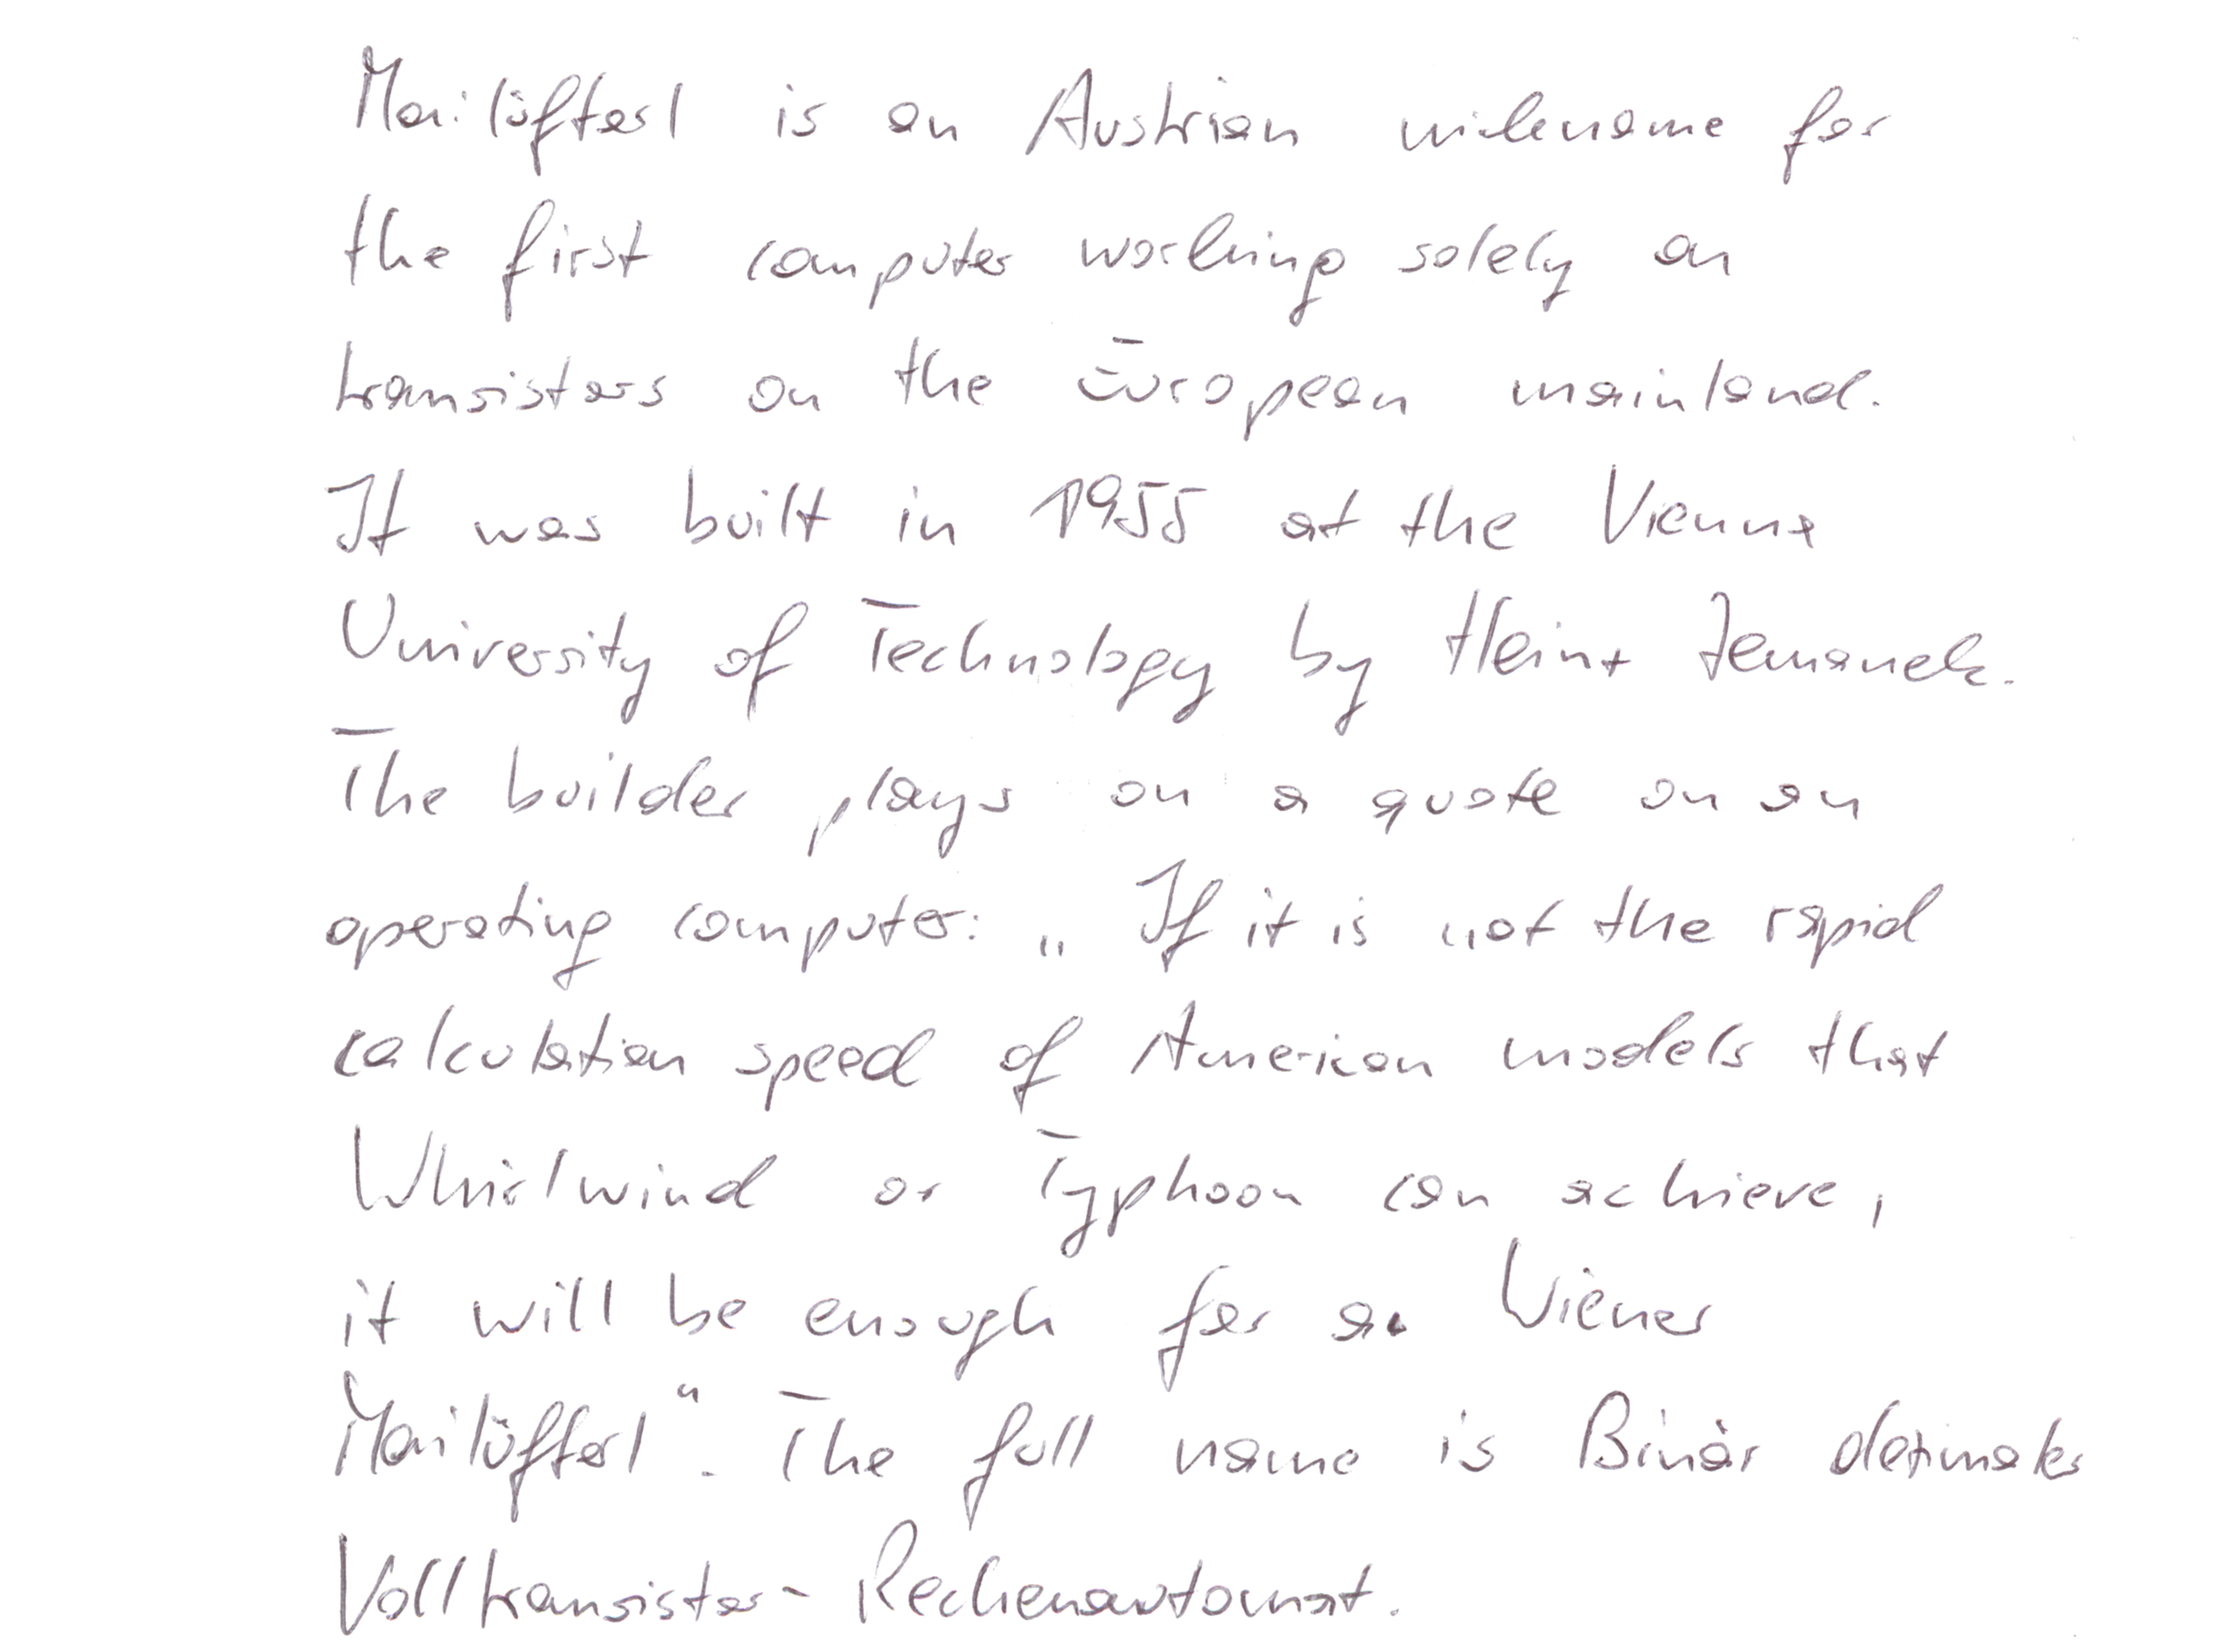 Mailüfterl is an Austrian nickname for
the first computer working solely on
transistors on the European mainland.
It was built in 1955 at the Vienna
University of Technology by Heinz Zemanek.
The builder plays on a quote on an
operating computer: „If it is not the rapid
calculation speed of American models that
Whirlwind or Typhoon can achieve,
it will be enough for a Wiener
Mailüfterl“. The full name is Binär dezimaler
Volltransistor-Rechenautomat.